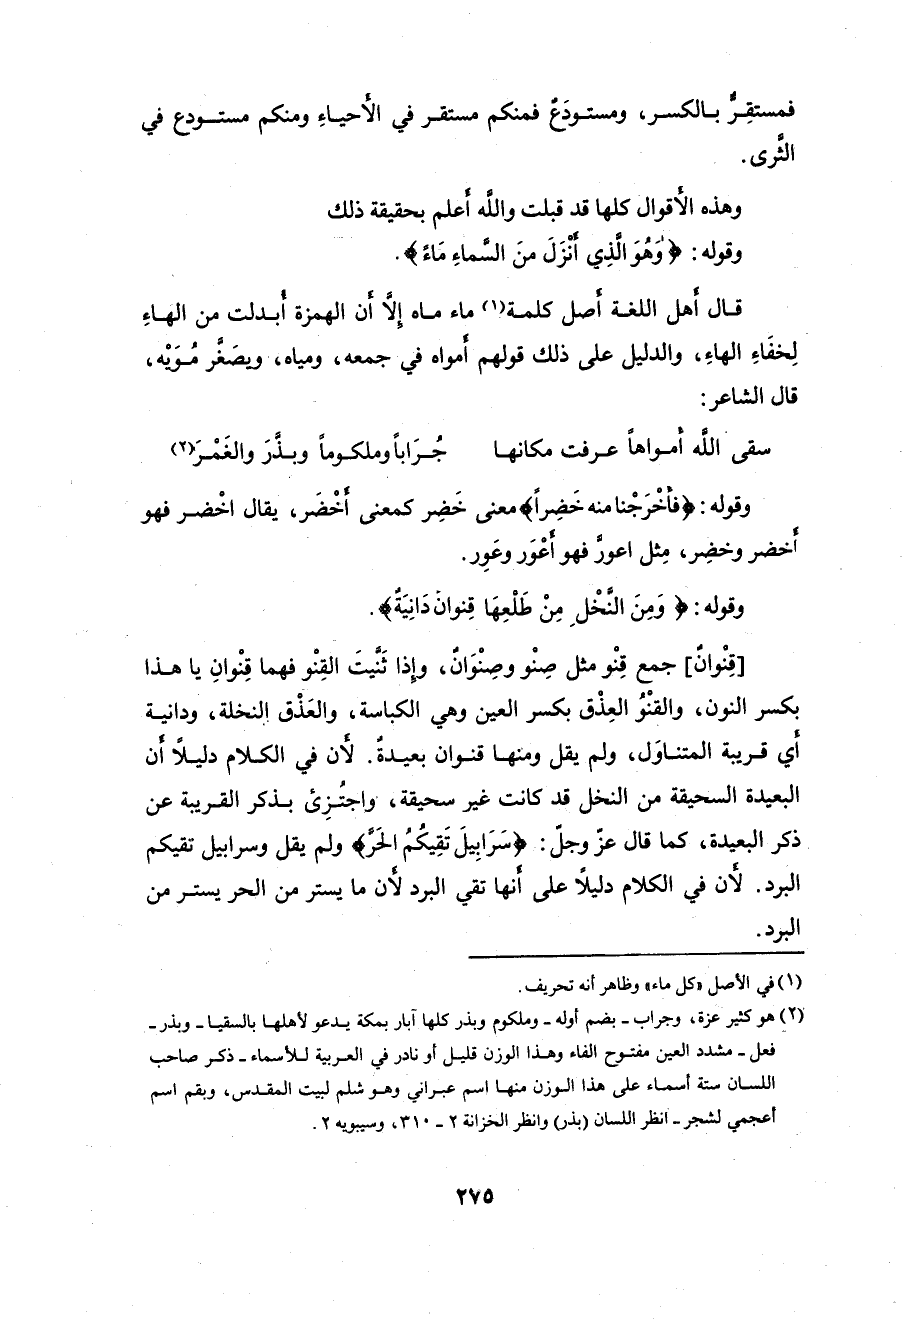 فمستقِرٌّ بالكسر، ومستودَعٌ فمنكم مستقر في الأَحياءِ ومنكم مستودع في
الثَّرى.
وهذه الأَقوال كلها قد قبلت واللَّه أَعلم بحقيقة ذلك
وقوله: ﴿وَهُوَ الَّذِي أَنْزَلَ منَ السَّماءِ مَاءً﴾.
قال أَهل اللغة أَصل كلمة(١) ماء ماه إِلَّا أَن الهمزة أُبدلت من الهاءِ
لِخفَاءِ الهاءِ، والدليل على ذلك قولهم أَمواه في جمعه، ومياه، ويصَغَّر مُوَيْه،
قال الشاعر:
سقى اللَّه أَمواهاً عرفت مكانها جُرَاباً وملكوماً وبذَّرَ والغَمْرَ(٢)
وقوله: ﴿فأَخْرَجْنا منه خَضِراً﴾ معنى خَضِر كمعنى أَخْضَر، يقال اخْضر فهو
أَخضر وخضِر، مِثل اعورَّ فهو أَعْوَر وعَوِر.
وقوله: ﴿وَمِنَ النَّخْلِ مِنْ طَلْعِهَا قِنوانٌ دَانِيَةٌ﴾.
[قِنْوانٌ] جمع قِنْو مثل صِنْو وصِنْوَانٌ، وإِذا ثَنَّيتَ القِنْو فهما قِنْوانِ يا هذا
بكسر النون، والقنْوُ العِذْق بكسر العين وهي الكباسة، والعَذْق النخلة، ودانية
أَي قريبة المتناوَل، ولم يقل ومنها قنوان بعيدةٌ. لأَن في الكلام دليلاً أَن
البعيدة السحيقة من النخل قد كانت غير سحيقة، واجتُزِئَ بذكر القريبة عن
ذكر البعيدة، كما قال عزّ وجلّ: ﴿سَرَابِيلَ تَقِيكُمُ الحَرَّ﴾ ولم يقل وسرابيل تقيكم
البرد. لأَن في الكلام دليلاً على أَنها تقي البرد لأَن ما يستر من الحر يستر من
البرد.
(١) في الأصل «كل ماء» وظاهر أنه تحريف.
(٢) هو كثير عزة، وجراب ـ بضم أوله ـ وملكوم وبذر كلها آبار بمكة يدعو لأهلها بالسقيا ـ وبذر ـ
فعل ـ مشدد العين مفتوح الفاء وهذا الوزن قليل أو نادر في العربية للأسماء ـ ذكر صاحب
اللسان ستة أسماء على هذا الوزن منها اسم عبراني وهو شلم لبيت المقدس، وبقم اسم
أعجمي لشجر ـ انظر اللسان (بذر) وانظر الخزانة ٢ ـ ٣١٠، وسيبويه ٢.
٢٧٥